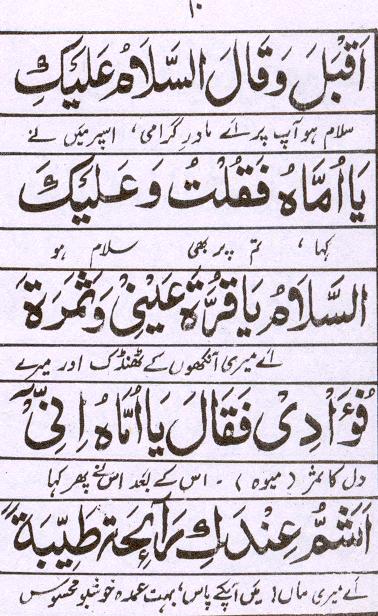 ۱۰
اَقْبَلَ وَقَالَ السَّلَامُ عَلَيْكِ
سلام ہو آپ پر اے مادرِ گرامی، اسپر میں نے
يَا اُمَّاهُ فَقُلْتُ وَعَلَيْكَ
کہا، تم پر بھی سلام ہو
السَّلَامُ يَا قُرَّةَ عَيْنِيْ وَثَمَرَةَ
اے میری آنکھوں کے ٹھنڈک اور میرے
فُؤَادِيْ فَقَالَ يَا اُمَّاهُ اِنِّيْٓ
دل کا ثمر (میوہ)۔ اس کے بعد اس نے پھر کہا
اَشَمُّ عِنْدَكِ رَآئِحَةً طَيِّبَةً
اے میری ماں! میں آپکے پاس، بہت عمدہ خوشبو محسوس